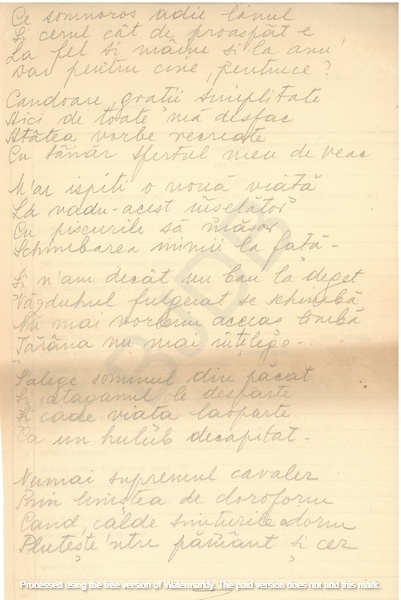 Ce somnoros adie lanul
Și cerul cât de proaspăt e
La fel și mâine și la anu'
Dar pentru cine, pentruce?
Candoare, grații simplitate
Aici de toate mă desfac
Atâtea vorbe recreate
Cu tânăr sfertul meu de veac
M'ar ispiti o nouă viață
La vadu-acest înșelător
Cu piscurile să măsor
Schimbarea inimii la față -
Și n'am decât un ban la deget
Văzduhul fulgerat se schimbă
Nu mai vorbim aceeas limbă
Țărâna nu mai înțeleg -
S'alege somnul din păcat
Și ataganul le desparte
Și cade viața laoparte
Ca un hulub decapitat -
Numai supremul cavaler
Prin liniștea de cloroform
Când, calde simțurile adorm
Plutește 'ntre pământ și cer
BJDB
Processed using the free version of Watermarkly. The paid version does not add this mark.